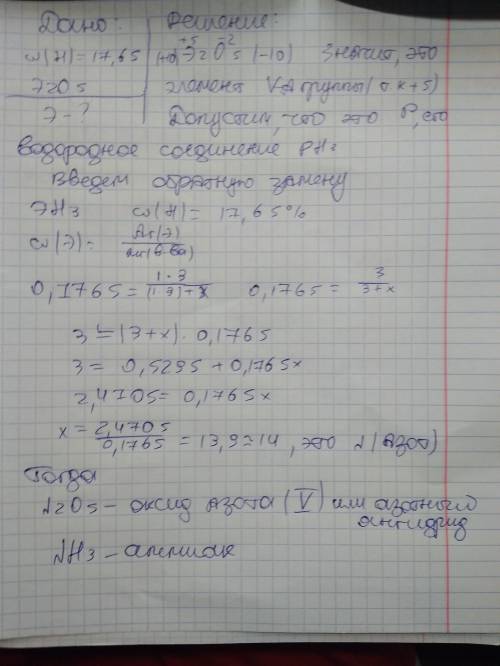 Дано: Решение:
ω(H)=17,65 (+10) Э₂⁺⁵O₅⁻² (-10) Значит, это
Э2O5 элемент VA группы (т.к +5)
Э-? Допустим, что это P, его
водородное соединение PH₃
Введем обратную замену
ЭH3 ω(H)=17,65%
ω(Э)= Ar(Э)/Mr(в-ва)
0,1765= 1·3/(1·3)+x 0,1765= 3/3+x
3=(3+x)·0,1765
3= 0,5295+0,1765x
2,4705= 0,1765x
x= 2,4705/0,1765 =13,9≈14, это N(Азот)
Тогда
N2O5 - оксид азота (V) или азотный
ангидрид
NH3 - аммиак